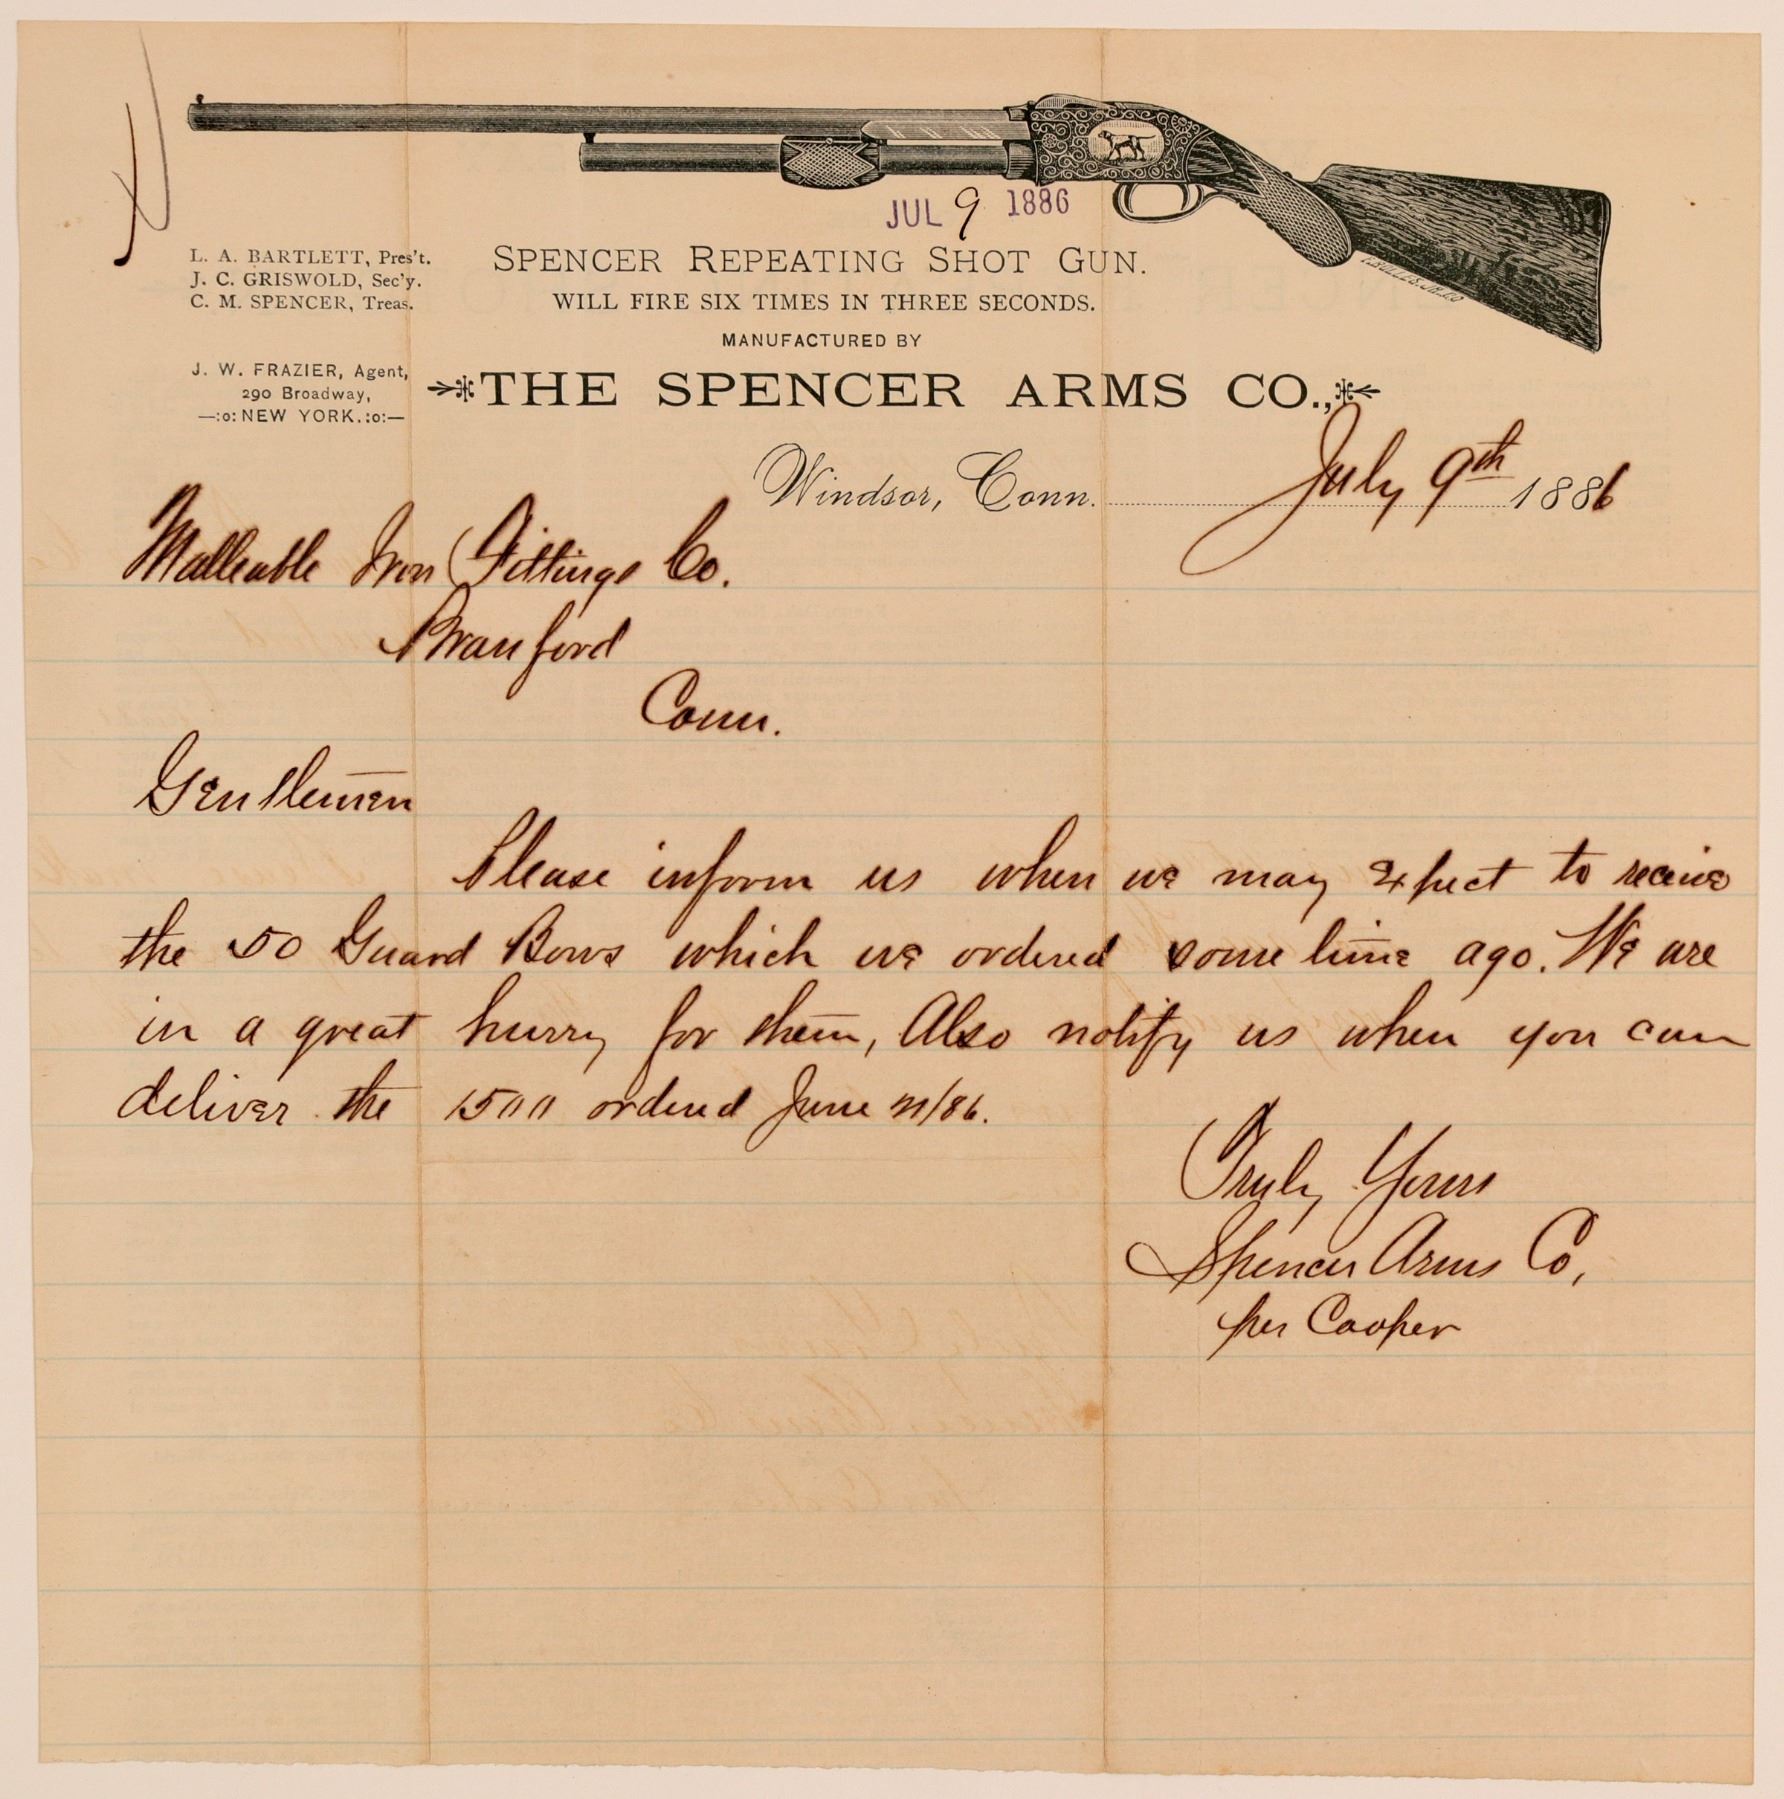 JUL 9 1886
L. A. BARTLETT, Pres't.
J. C. GRISWOLD, Sec'y.
C. M. SPENCER, Treas.
J. W. FRAZIER, Agent,
290 Broadway,
—:o: NEW YORK. :o:—
SPENCER REPEATING SHOT GUN.
WILL FIRE SIX TIMES IN THREE SECONDS.
MANUFACTURED BY
THE SPENCER ARMS CO.,
Windsor, Conn. July 9th 1886
Malleable Iron Fittings Co.
Branford
Conn.
Gentlemen
Please inform us when we may expect to receive
the 50 Guard Bows which we ordered some time ago. We are
in a great hurry for them, Also notify us when you can
deliver the 1500 ordered June /86.
Truly Yours
Spencer Arms Co,
per Cooper